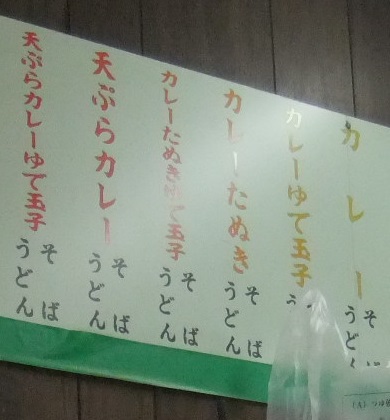 カレー
そば
うど
カレーゆで玉子
カレーたぬき
そば
うどん
カレーたぬきゆで玉子
そば
うどん
天ぷらカレー
そば
うどん
天ぷらカレーゆで玉子
そば
うどん